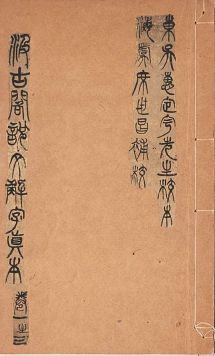 東吳惠定宇先生校本
海虞席世昌補校
汲古閣說文解字真本 卷一之三